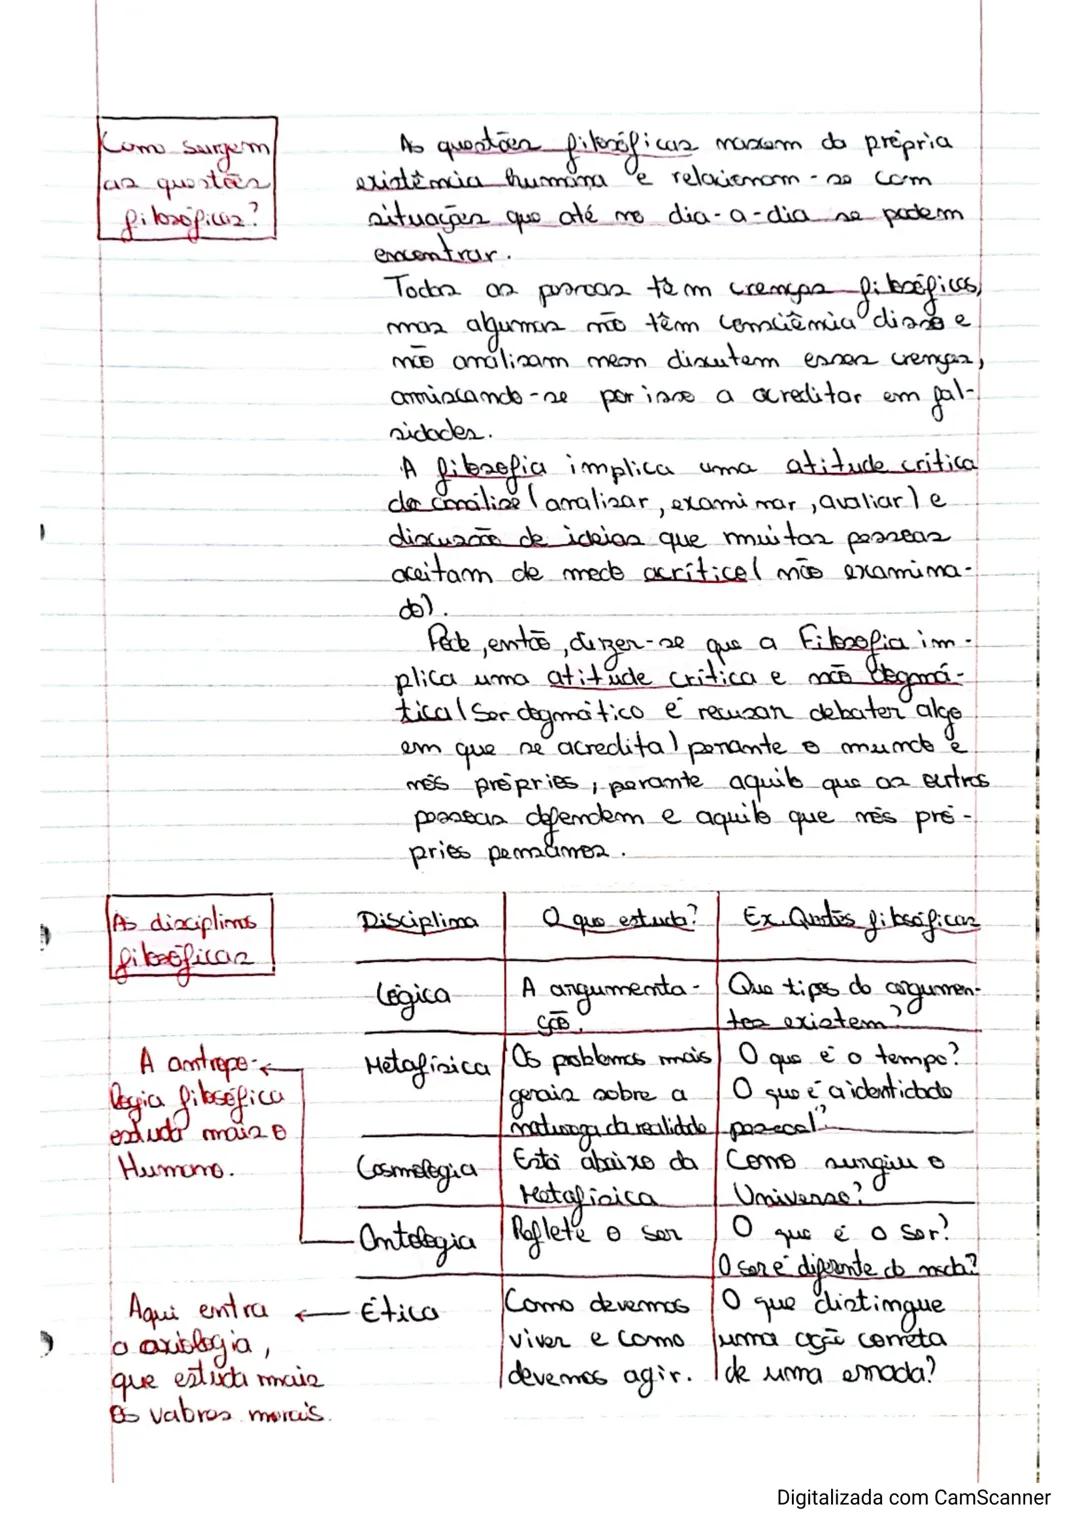 Como surgem
as questões
filosóficas?
As questões filosóficas nascem da própria
existência humana e relacionam-se com
situações que até no dia-a-dia se podem
encontrar.
Todas as pessoas têm crenças filosóficas,
mas algumas não têm consciência disso e
não analisam nem discutem essas crenças,
arriscando-se por isso a acreditar em fal-
sidades.
A filosofia implica uma atitude crítica
de análise (analisar, examinar, avaliar) e
discussão de ideias que muitas pessoas
aceitam de modo acrítico (não examina-
do).
Pode, então, dizer-se que a Filosofia im-
plica uma atitude crítica e não dogmá-
tica (Ser dogmático é recusar debater algo
em que se acredita) perante o mundo e
nós próprios, perante aquilo que as outras
pessoas defendem e aquilo que nós pró-
prios pensamos.
As disciplinas
filosóficas
Disciplina | O que estuda? | Ex. Questões filosóficas
Lógica | A argumenta- | Que tipos de argumen-
ção. | tos existem?
A antropo-
logia filosófica
estuda mais o
Humano.
Metafísica | Os problemas mais | O que é o tempo?
gerais sobre a | O que é a identidade
natureza da realidade | pessoal?
Cosmologia | Está abaixo da | Como surgiu o
Metafísica | Universo?
Ontologia | Reflete o ser | O que é o ser?
O ser é diferente do nada?
Aqui entra
a axiologia,
que estuda mais
os valores morais.
Ética | Como devemos | O que distingue
viver e como | uma ação correta
devemos agir. | de uma errada?
Digitalizada com CamScanner